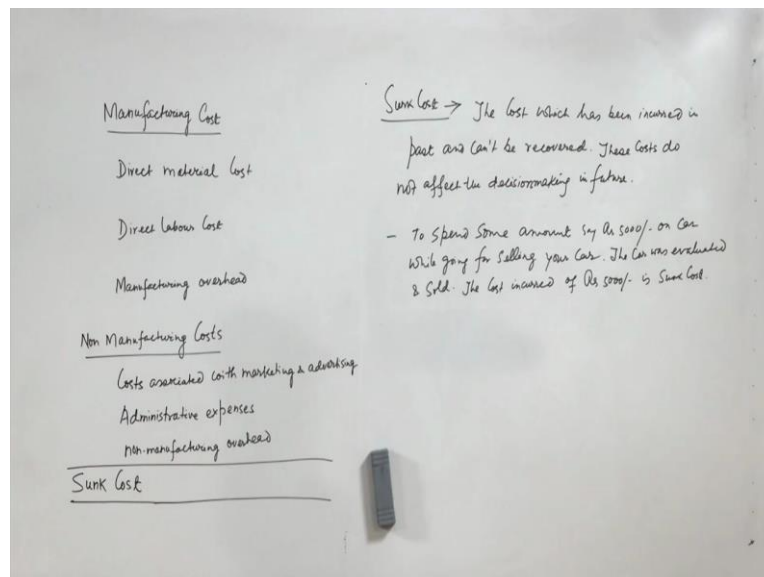 Manufacturing Cost
Direct material Cost
Direct Labour Cost
Manufacturing overhead
Non Manufacturing Costs
Costs associated with marketing & advertising
Administrative expenses
non-manufacturing overhead
Sunk Cost
Sunk Cost → The Cost which has been incurred in
past and can't be recovered. These Costs do
not affect the decisionmaking in future.
- To spend some amount say Rs 5000/- on Car
while going for selling your Car. The Car was evaluated
& sold. The Cost incurred of Rs 5000/- is Sunk Cost.